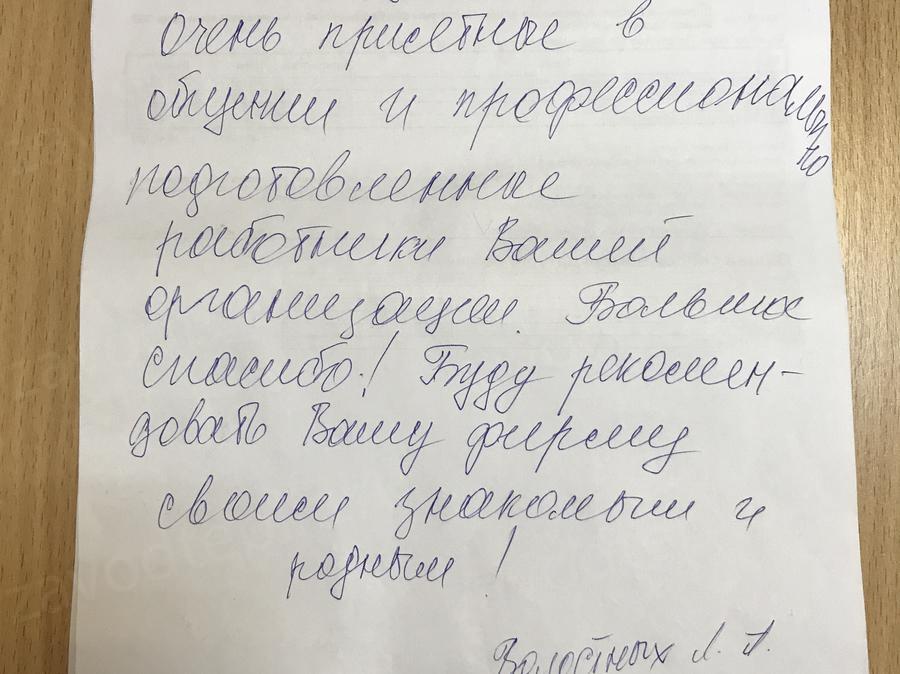 Очень приятные в
общении и профессиональ
но
подготовленные
работники Вашей
организации. Большое
спасибо! Буду рекомен-
довать Вашу фирму
своим знакомым и
родным!
Волостных Л. А.